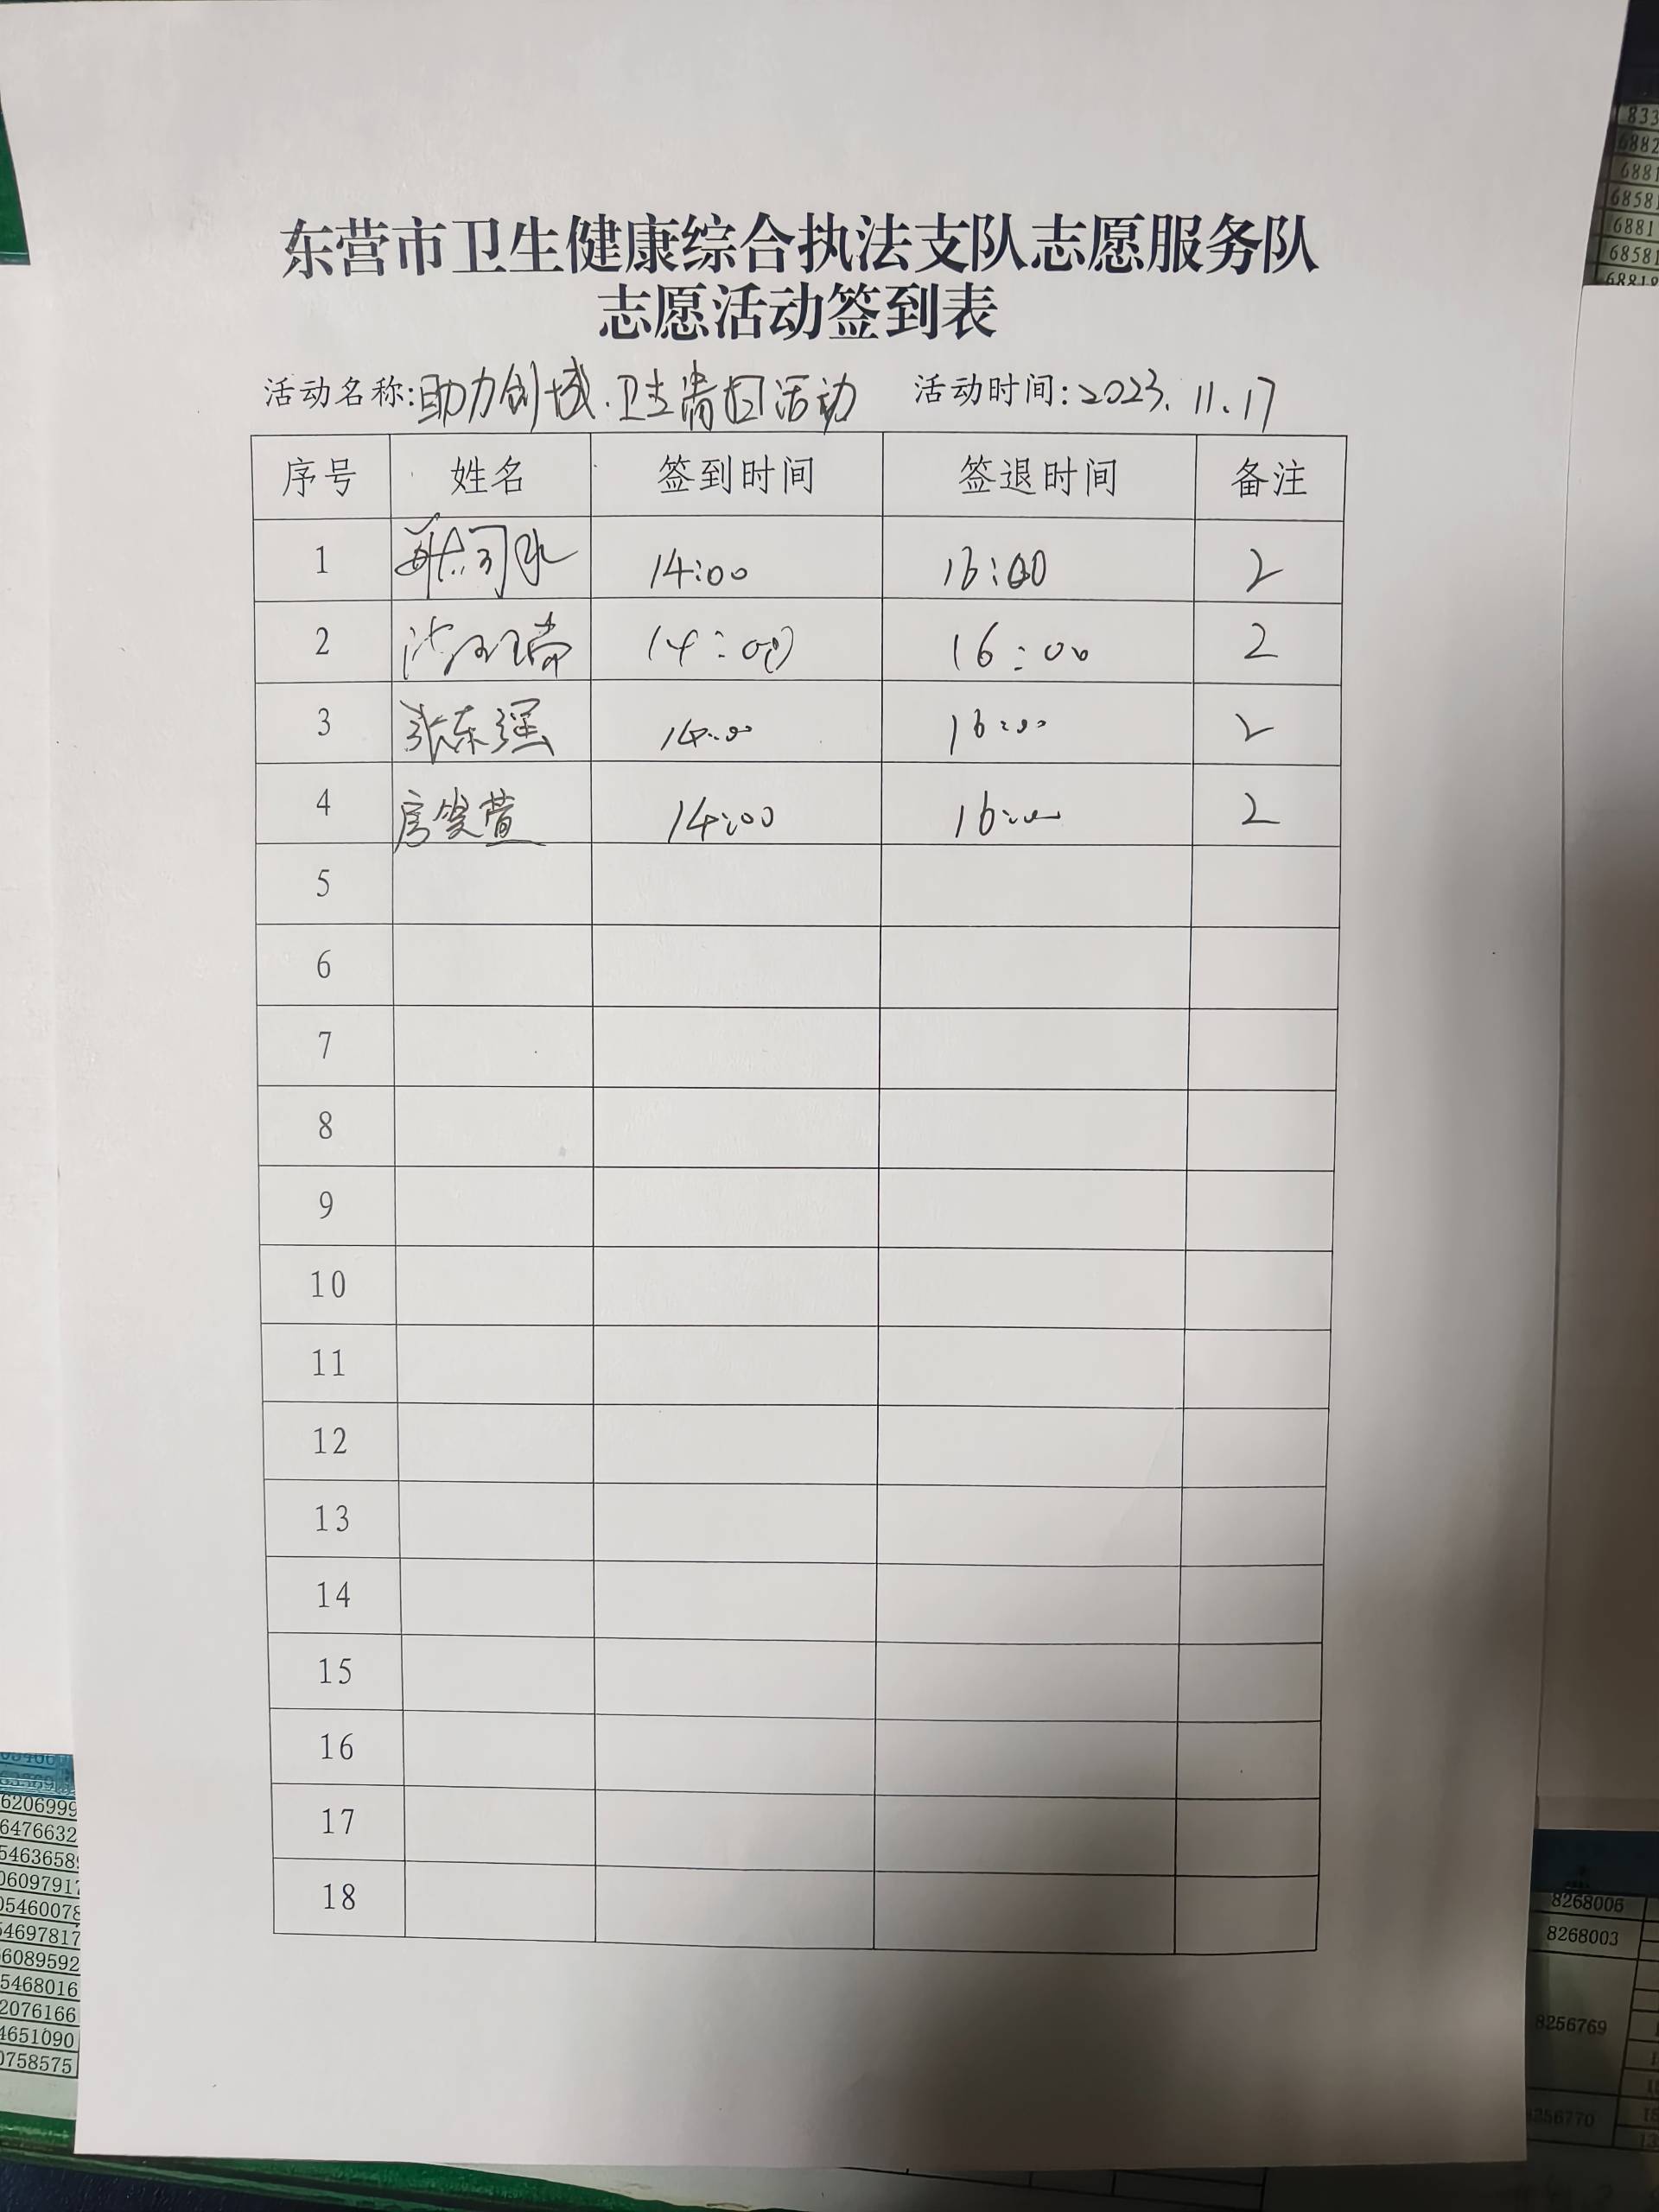 东营市卫生健康综合执法支队志愿服务队
志愿活动签到表
活动名称:助力创城.卫生清扫活动 活动时间:2023.11.17
序号 姓名 签到时间 签退时间 备注
1 14:00 16:00 2
2 14:00 16:00 2
3 张东强 14:00 16:00 2
4 房笑萱 14:00 16:00 2
5
6
7
8
9
10
11
12
13
14
15
16
17
18
6882
6881
68581
6881
68581
6206999
6476632
5463658
0609791
0546007
5469781
6089592
5468016
2076166
4651090
0758575
8268006
8268003
8256769
8256770